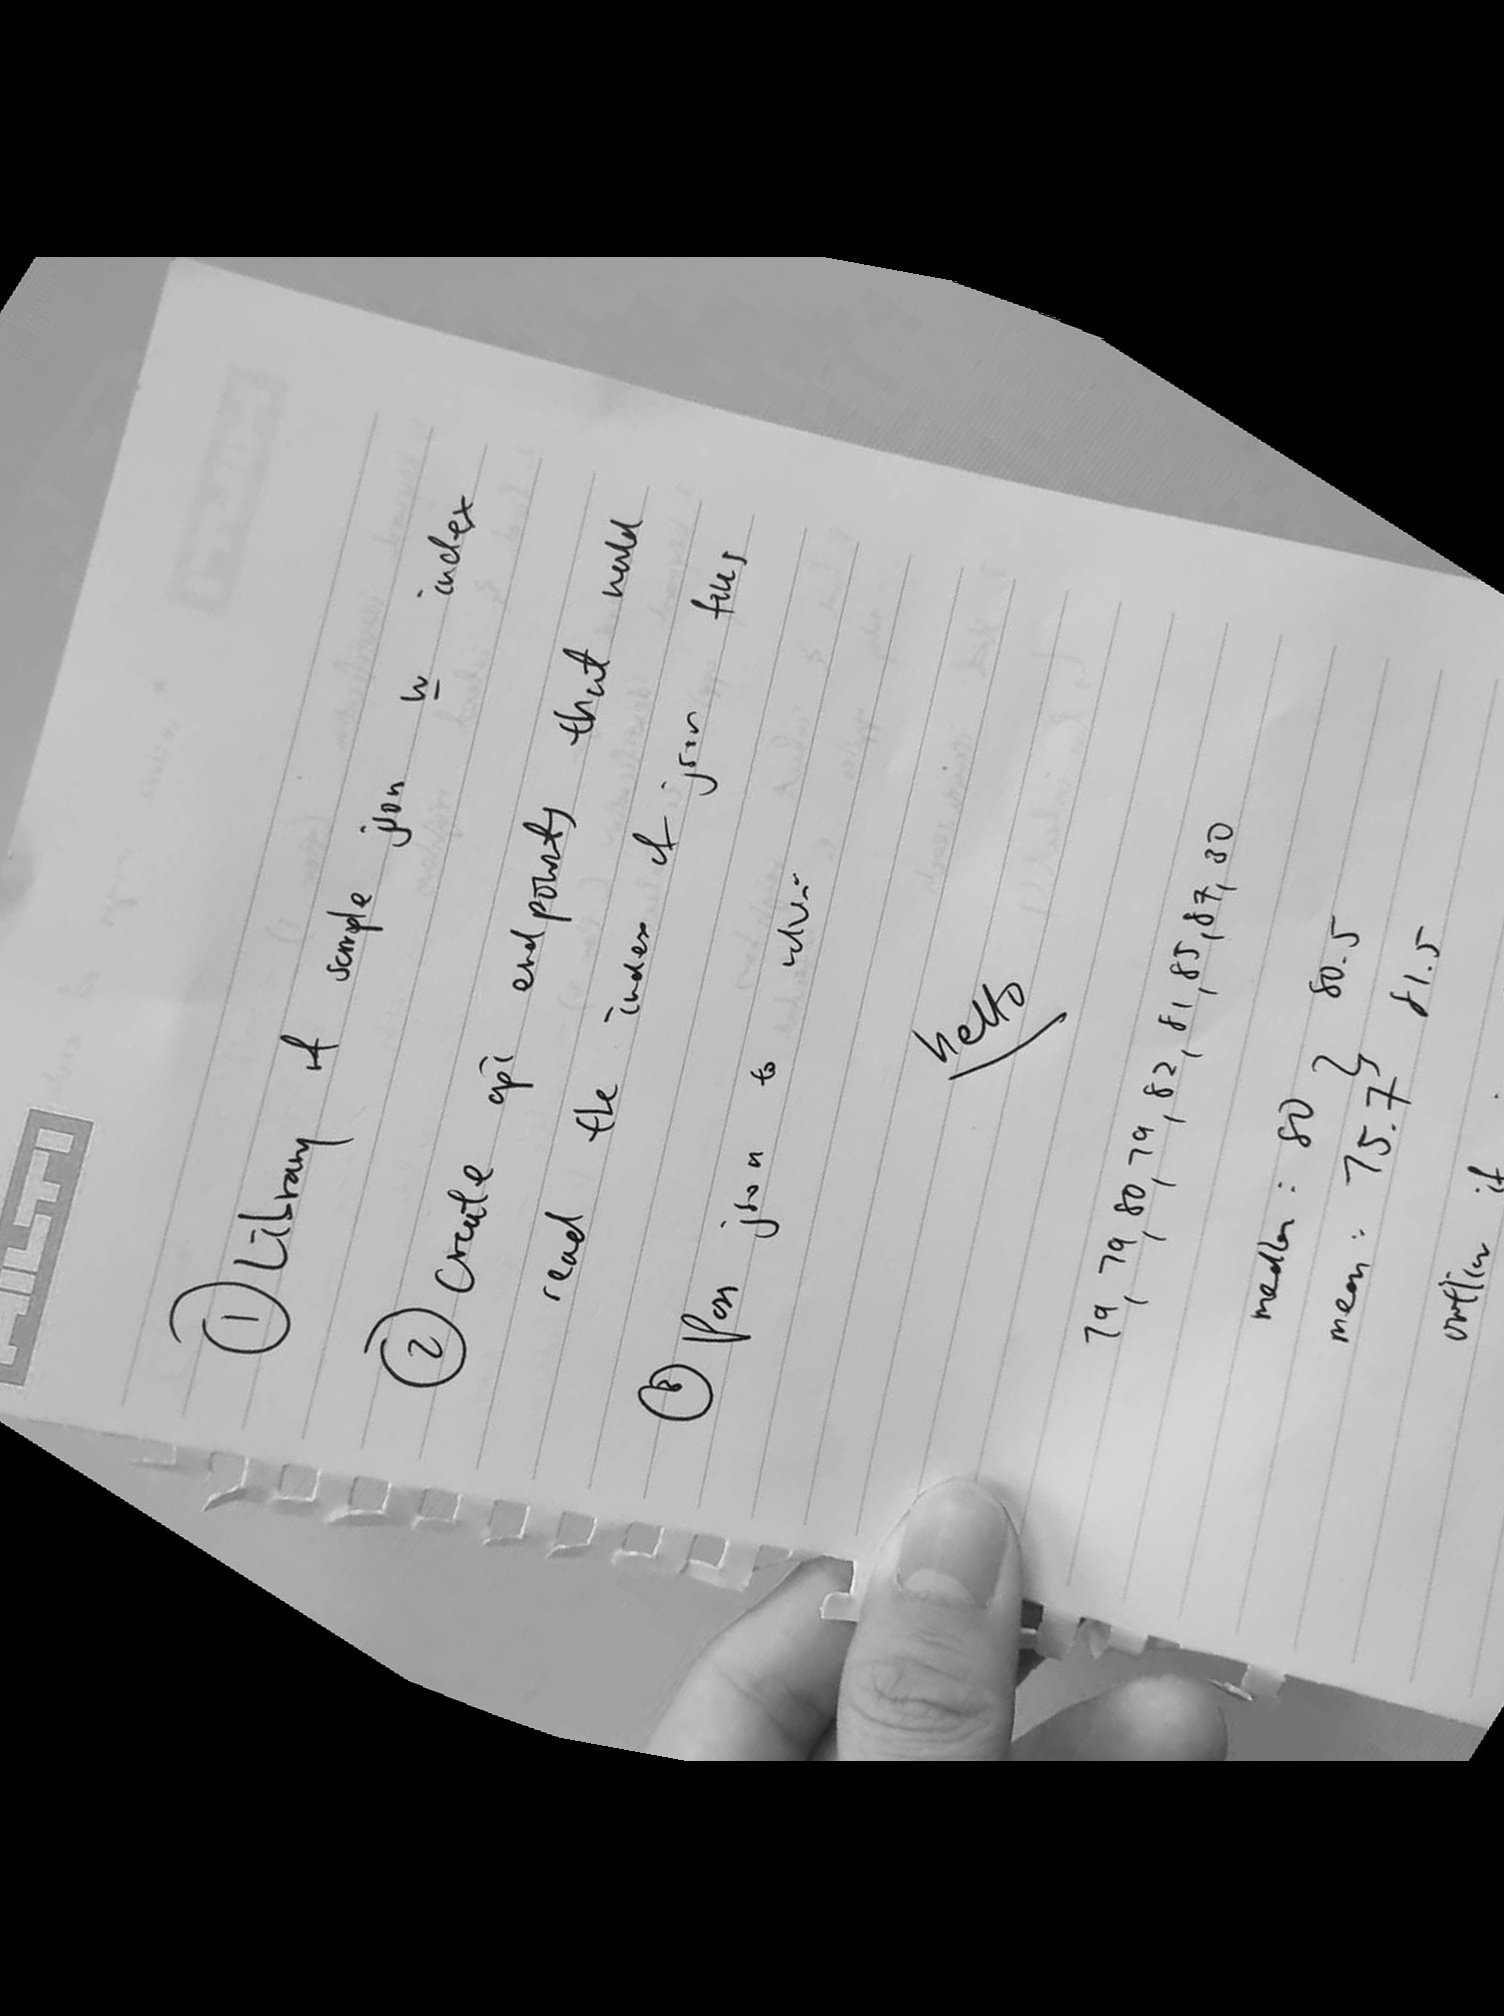 HILTI
① Library of sample json w index
② Create api endpoints that would
read the index of json files
③ Pass json to
hello
79, 79, 80, 79, 82, 81, 85, 87, 30
median : 80 } 80.5
mean : 75.7 81.5
outlier if